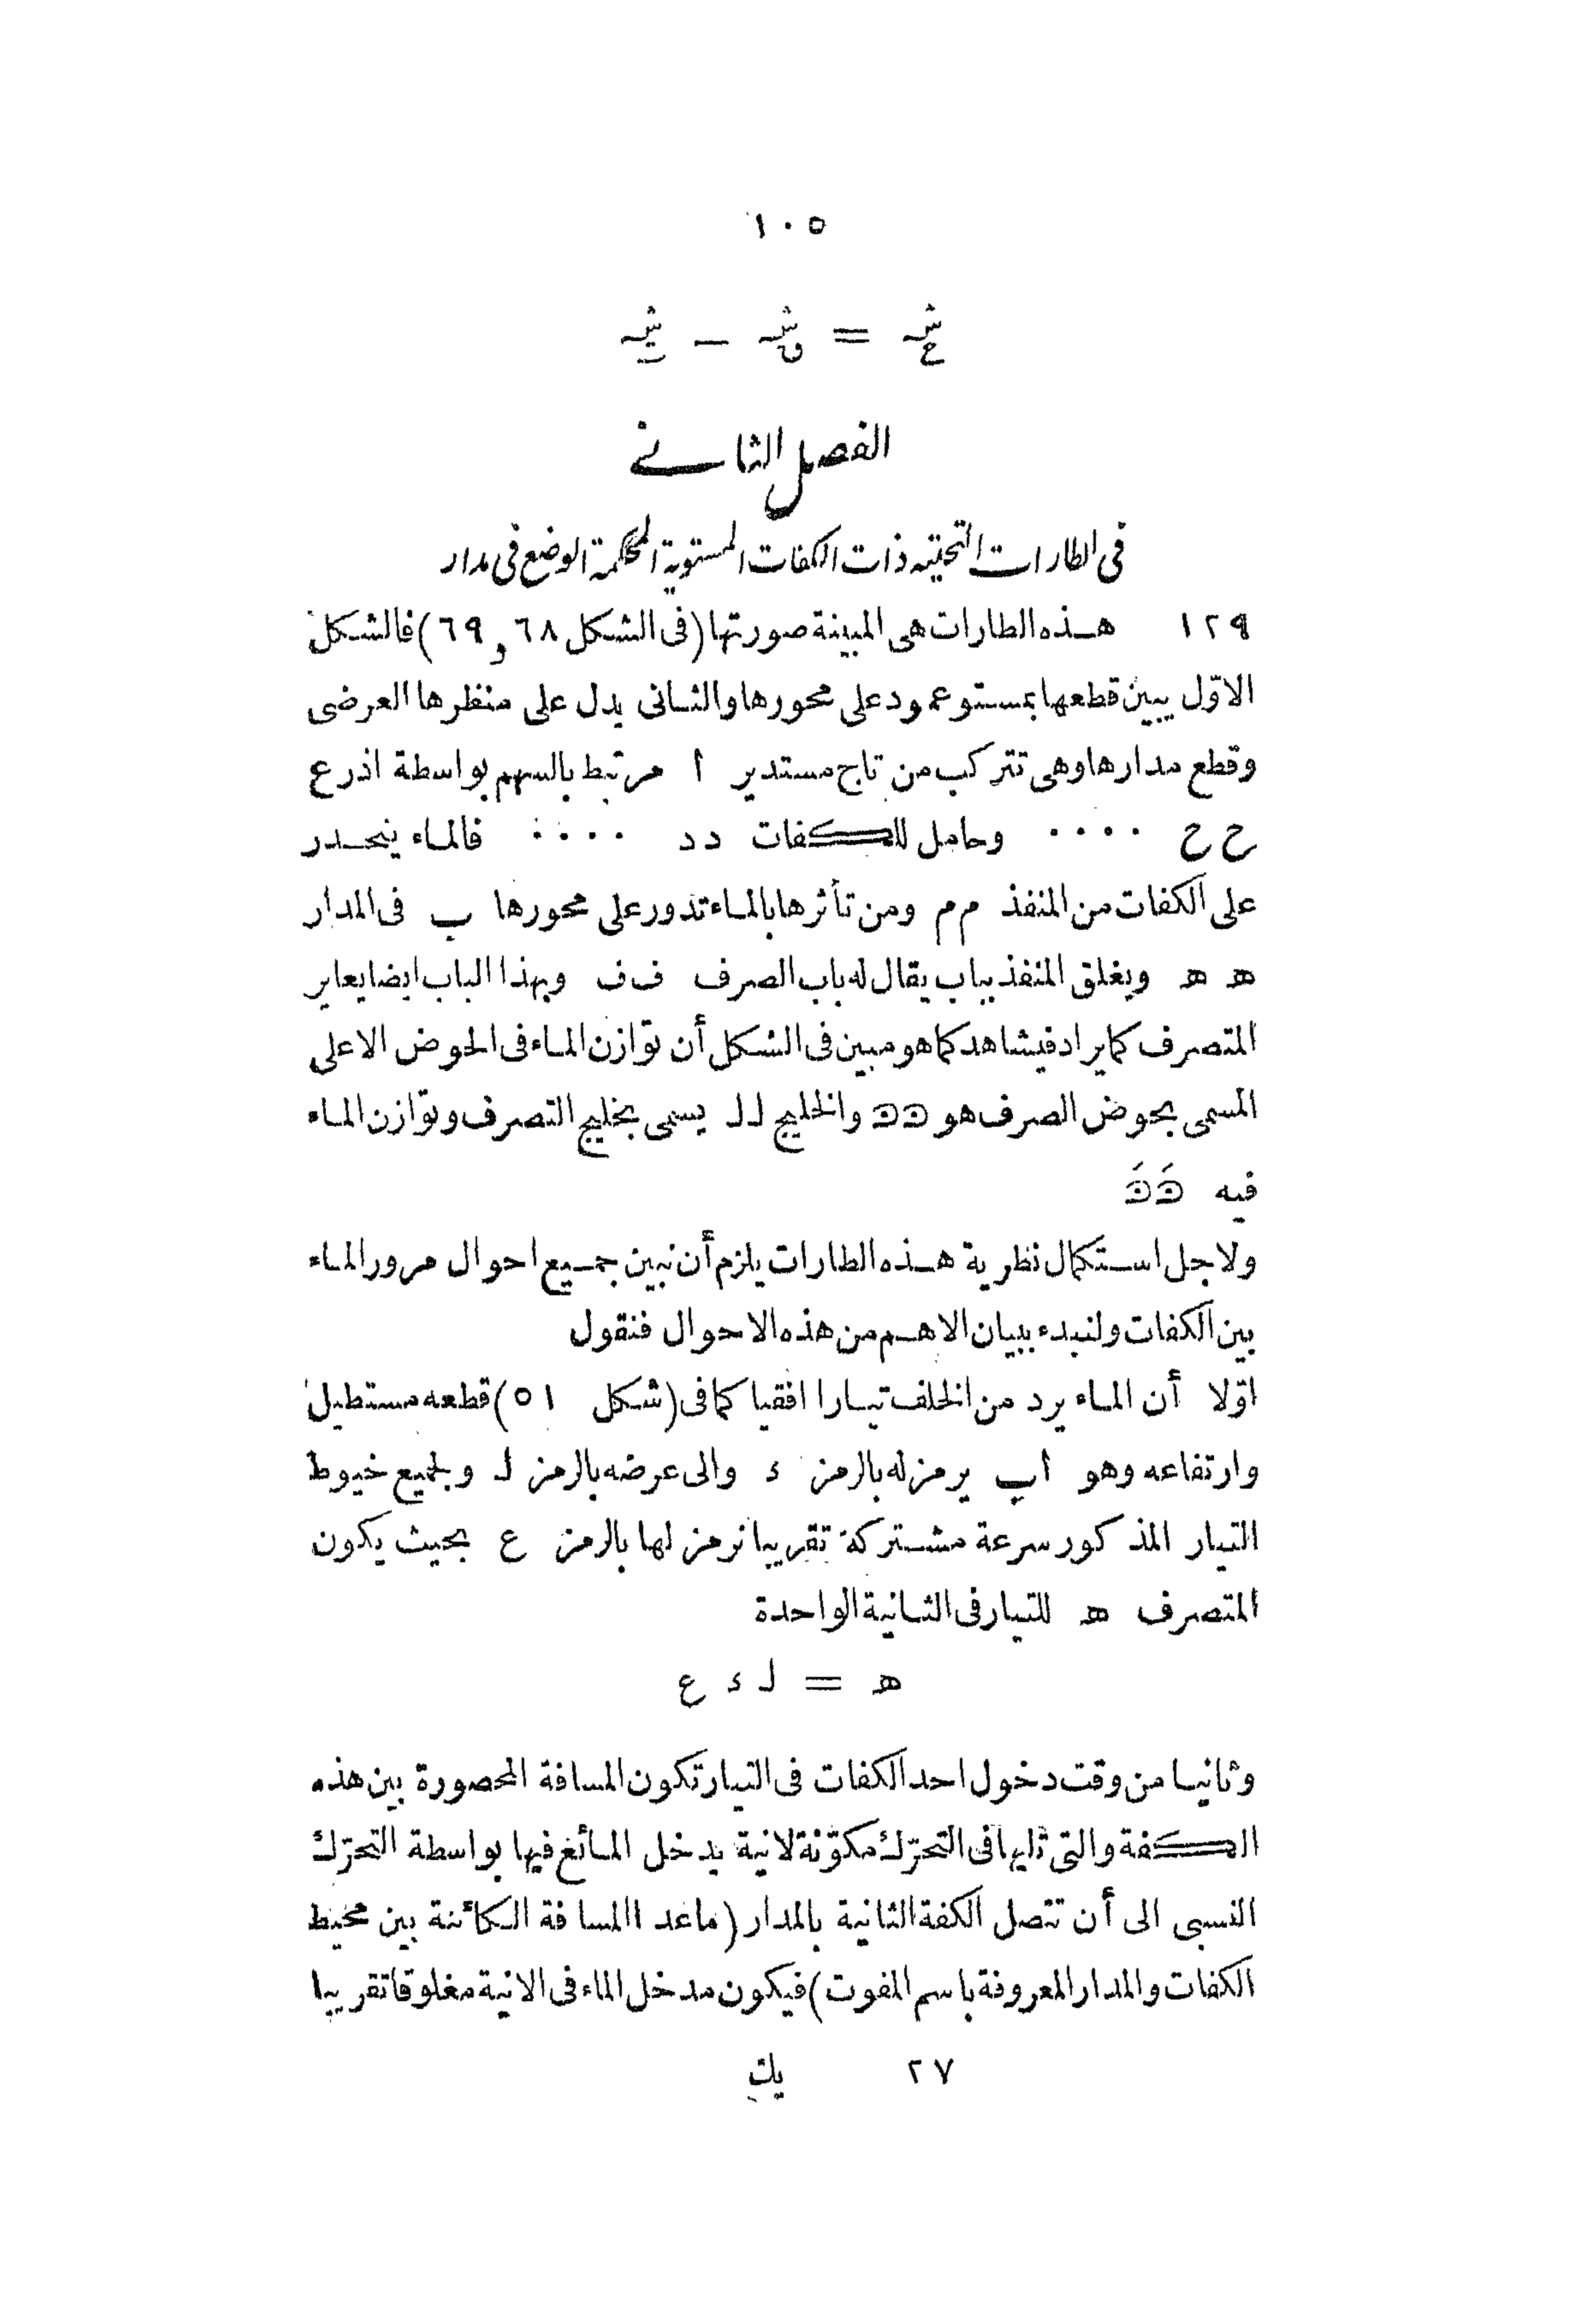 ١٠٥
شہ ع = شہ ق – شہ ى
الفصل الثانى
فى الطارات التحتيه ذات الكفات المستوية المحكمة الوضع فى مدار
١٢٩ هذه الطارات هى المبينة صورتها (فى الشكل ٦٨ و ٦٩) فالشكل
الاوّل يبين قطعها بمستو عمود على محورها والثانى يدل على منظرها العرضى
وقطع مدارها وهى تتركب من تاج مستدير ا مرتبط بالسهم بواسطة اذرع
ح ح .... وحامل للكفات د د .... فالماء ينحدر
على الكفات من المنفذ م م ومن تأثرها بالماء تدور على محورها ب فى المدار
ه ه ويغلق المنفذ بباب يقال له باب الصرف ف ف وبهذا الباب ايضا يعاير
المتصرف كما يراد فيشاهد كما هو مبين فى الشكل أن توازن الماء فى الحوض الاعلى
المسمى بحوض الصرف هو ט ט والخليج ل ل يسمى بخليج التصرف وتوازن الماء
فيه
ولاجل استكمال نظرية هذه الطارات يلزم أن نبين جميع احوال مرور الماء
بين الكفات ولنبدء ببيان الاهم من هذه الاحوال فنقول
اوّلا أن الماء يرد من الخلف تيارا افقيا كما فى (شكل ٥١) قطعه مستطيل
وارتفاعه وهو اب يرمز له بالرمز ء والى عرضه بالرمز ل ولجميع خيوط
التيار المذكور سرعة مشتركة تقريبا نرمز لها بالرمز ع بحيث يكون
المتصرف ه للتيار فى الثانية الواحدة
ه = ل ء ع
وثانيا من وقت دخول احد الكفات فى التيار تكون المسافة المحصورة بين هذه
الكفة والتى تليها فى التحرّك مكوّنة لانية يدخل المائع فيها بواسطة التحرّك
النسبى الى أن تتصل الكفة الثانية بالمدار (ماعدا المسافة الكائنة بين محيط
الكفات والمدار المعروفة باسم المفوت) فيكون مدخل الماء فى الانية مغلوقا تقريبا
٢٧ يك